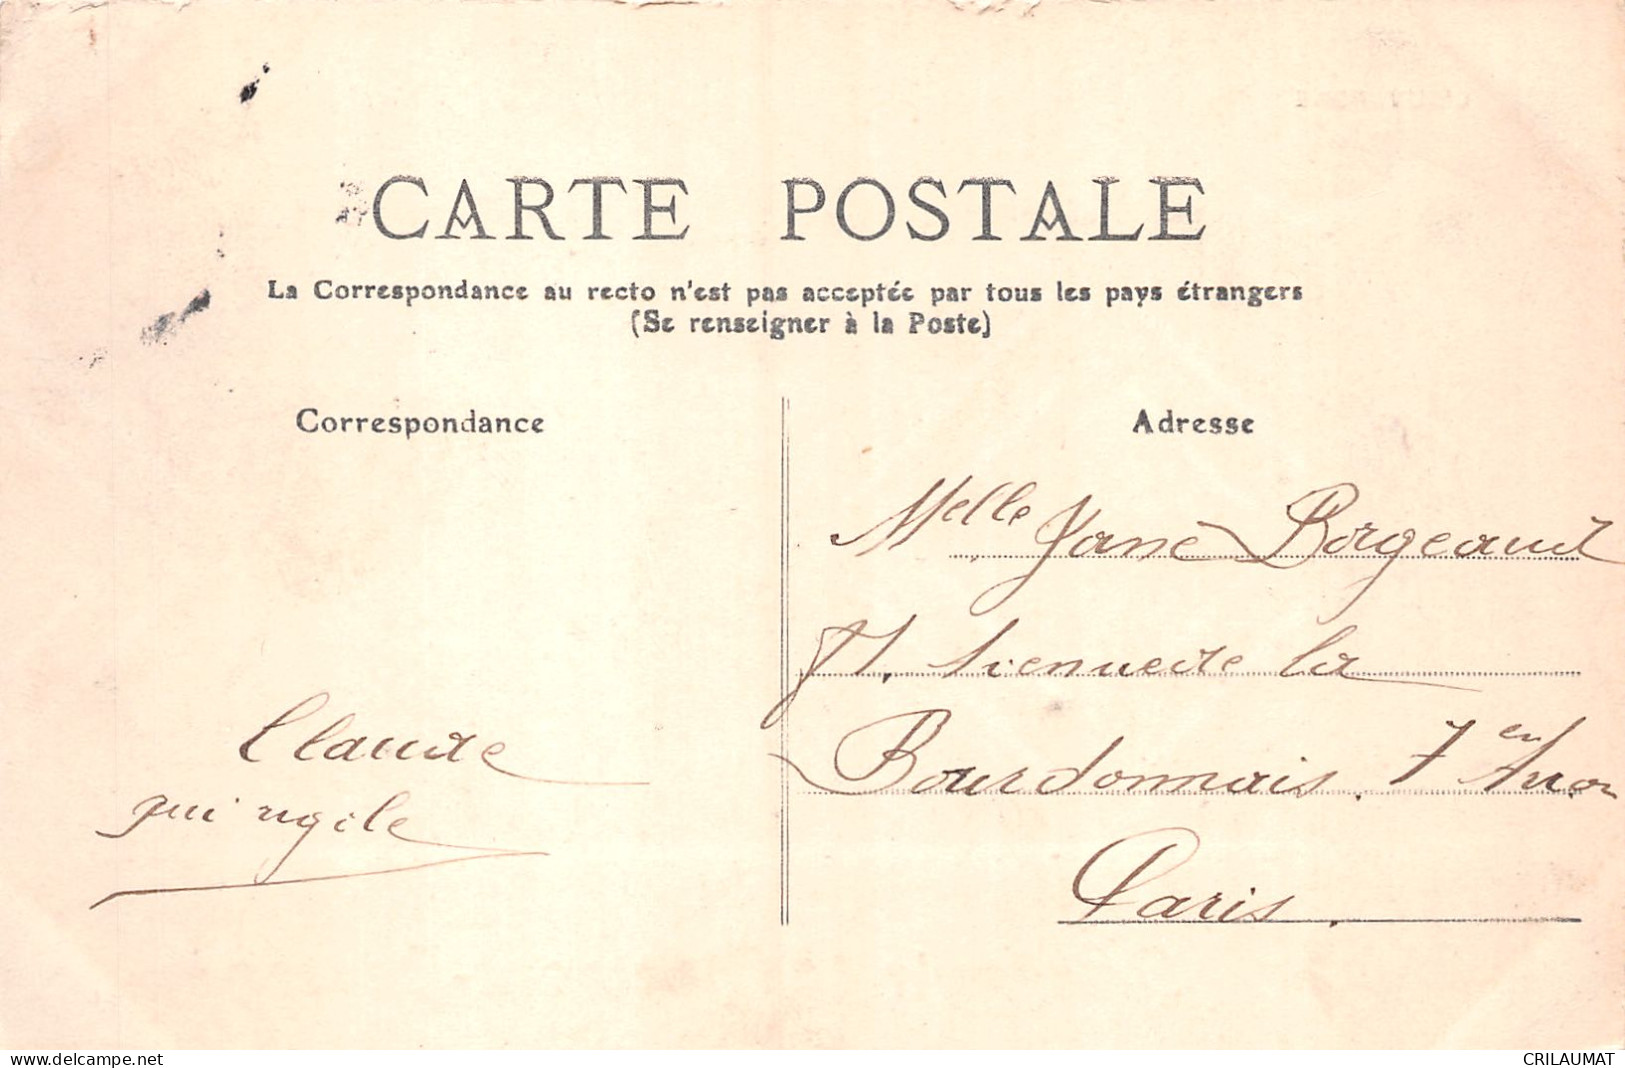 CARTE POSTALE
La Correspondance au recto n'est pas acceptée par tous les pays étrangers
(Se renseigner à la Poste)
Correspondance
Adresse
Melle Jane Borgeaud
la
Bourdonnais. 7
Paris.
Claude
qui
www.delcampe.net
CRILAUMAT